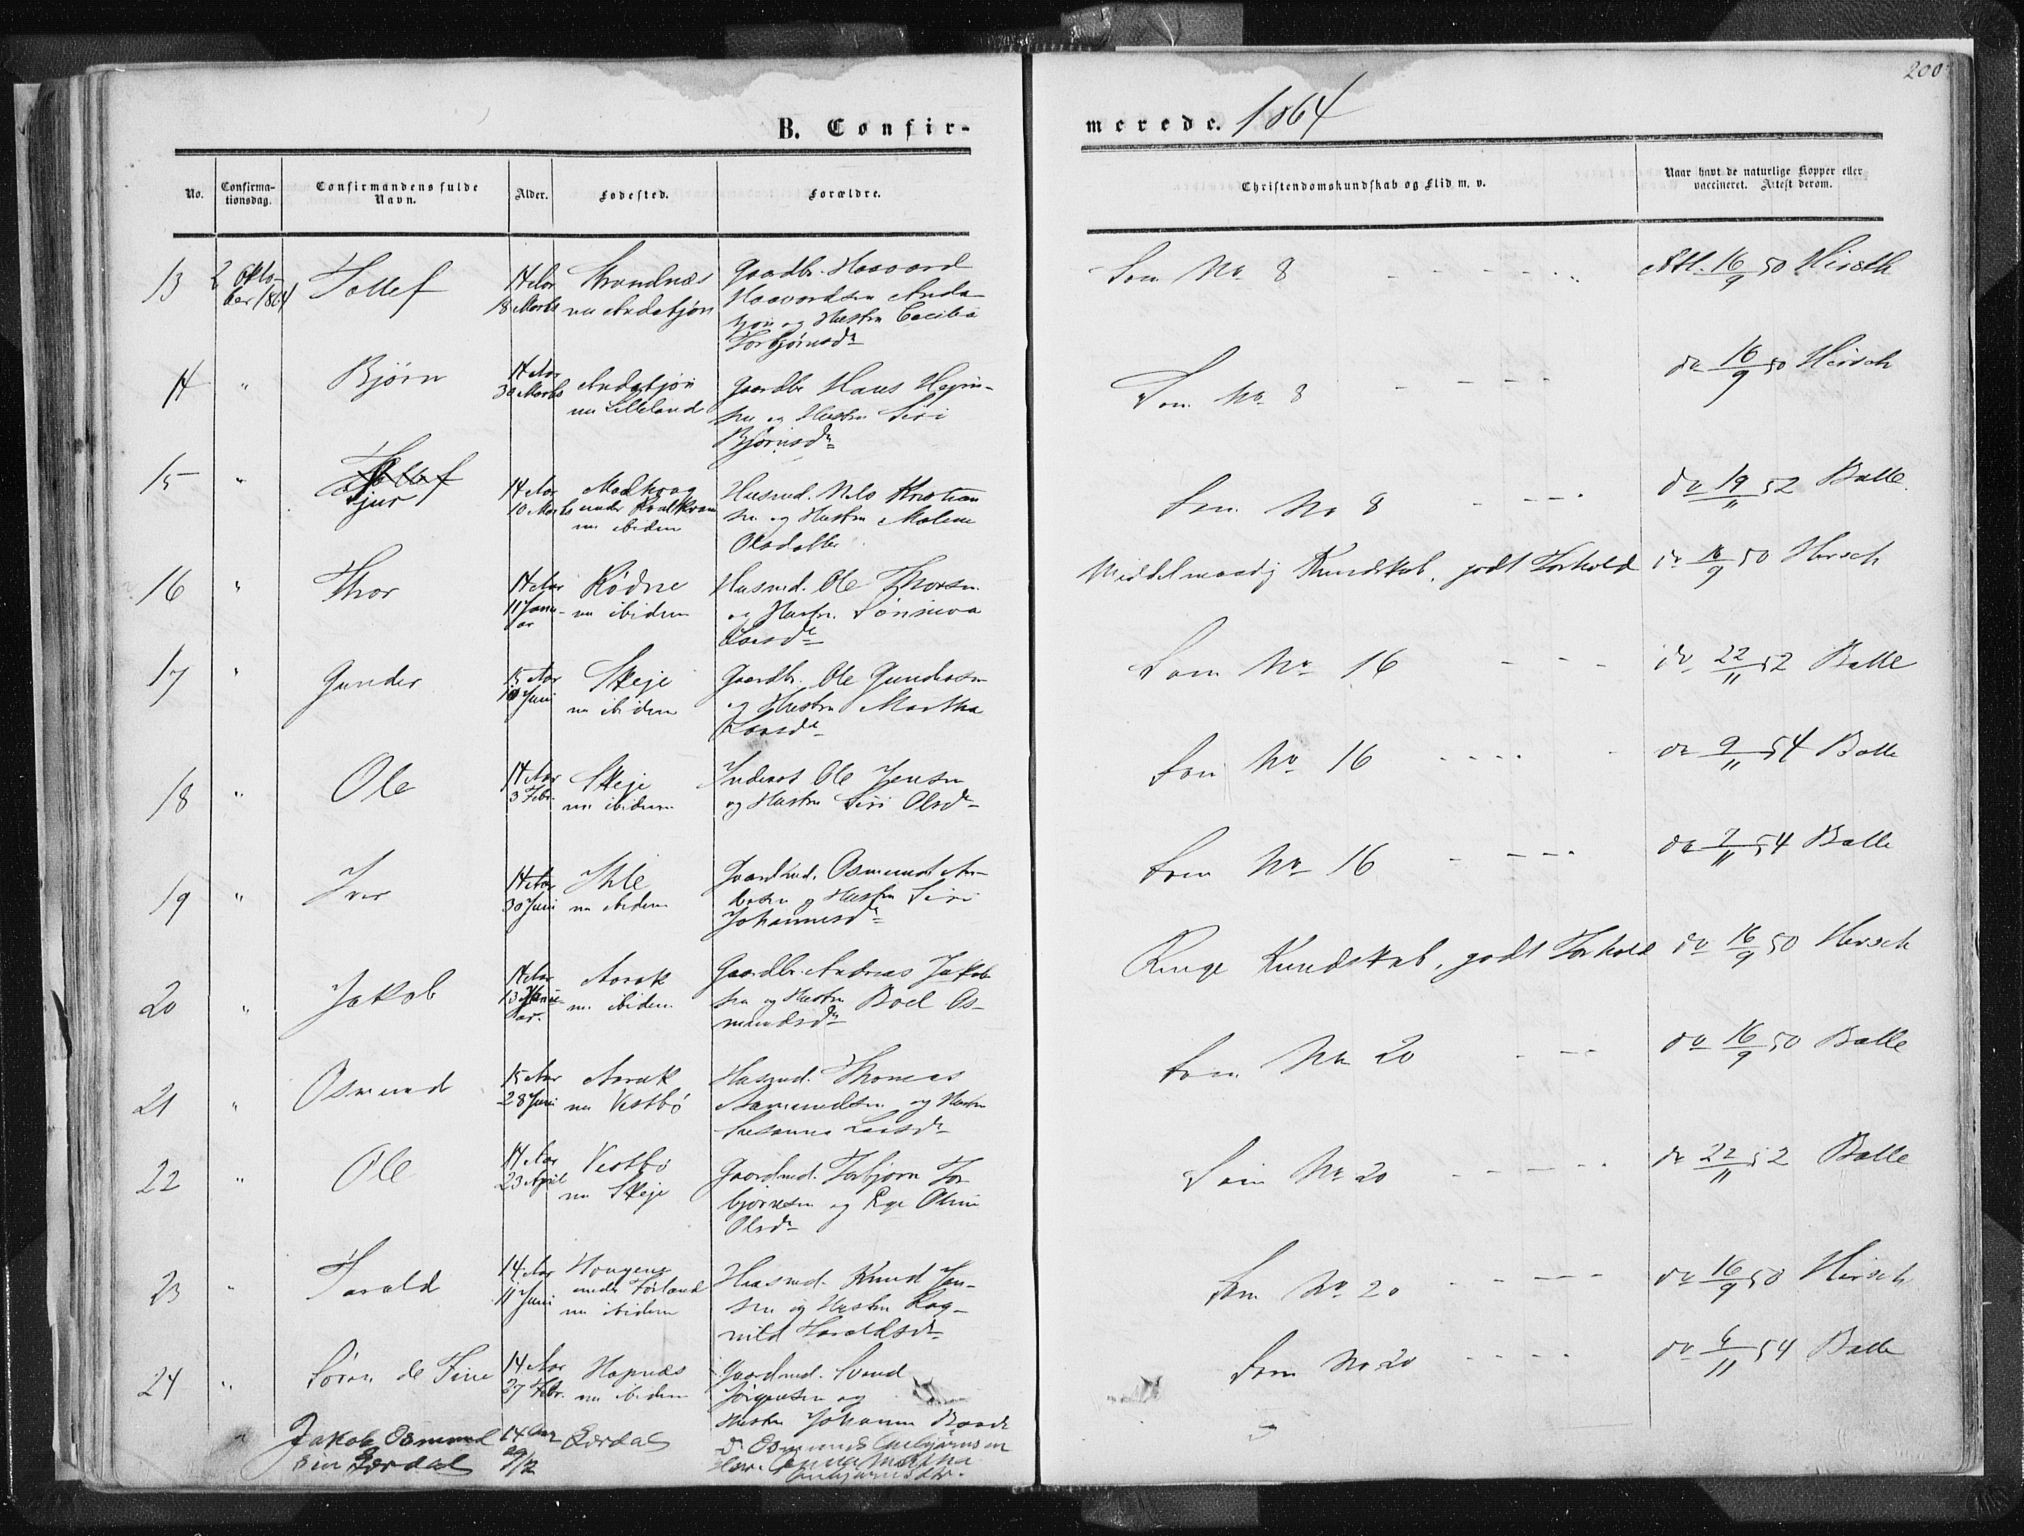 200
B. Confir-
merede. 1864
No.
Confirma-
tionsdag.
Confirmandens fulde
Navn.
Alder.
Fødested.
Forældre.
Christendomskundskab og Flid m. v.
Naar havt de naturlige Kopper eller
vaccineret. Attest derom.
13 2 Okto-
ber 1864 Tollef 14 Aar
18 Marts Strandnæs
nu Andatjön Gaardbr. Haavard
Haavordsen Anda-
tjön og Hustru Cecilia
Torbjørnsdr Som No 8 Att. 16/9 50 Hirsch
14 " Bjørn 14 Aar
30 Marts Andatjön
nu Lilleland Gaardbr Hans
sen og Hustru Siri
Bjørnsdr Som No 8 do 16/9 50 Hirsch
15 " Tollef
Sjur 14 Aar
10 Marts
under
nu ibidem Husmd. Nils Kristian
sen og Hustru Malene
Olsdatter Som No 8 do 19/11 52 Balle.
16 " Thor 14 Aar
11 Janu-
ar Rødne
nu ibidem Husmd. Ole Thorsen
og Hustru Sønneva
Larsdr Middelmaadig Kundskab, godt Forhold do 16/9 50 Hirsch
17 " Gunder 15 Aar
10 Juni Skeje
nu ibidem Gaardbr. Ole Gundersen
og Hustru Martha
Larsdr Som No 16 do 22/11 52 Balle
18 " Ole 14 Aar
3 Febr. Skeje
nu ibidem Inderst Ole Jensen
og Hustru Siri Olsdr Som No 16 do 9/11 54 Balle
19 " Iver 14 Aar
30 Juni Ihle
nu ibidem Gaardmd. Osmund
og Hustru Siri
Johannesdr Som No 16 do 7/11 54 Balle
20 " Jakob 14 Aar
13 Janu-
ar. Aarak
nu ibidem Gaardbr. Andreas Jakob
sen og Hustru Boel Os-
mundsdr Ringe Kundskab, godt Forhold do 16/9 50 Hirsch
21 " Osmund 15 Aar
28 Juni Aarak
nu Vestbö Husmd. Thomas
Aamundsen og Hustru
Susanna Larsdr Som No 20 do 16/9 50 Balle
22 " Ole 14 Aar
23 April Vestbö
nu Skeje Gaardmd. Torbjørn Tor
bjørnsen og Pige
Olsdr Som No 20 do 22/11 52 Balle
23 " Tarald 14 Aar
11 Juni Hougen
under Førland
nu ibidem Husmd. Knud Jen-
sen og Hustru Rag-
nild Haraldsdr Som No 20 do 16/9 50 Hirsch
24 " Søren de Fine 14 Aar
27 Febr. Hapnæs
nu ibidem Gaardmd. Svend
Jørgensen og
Hustru Johanne Som No 20 do 6/11 54 Balle
" Jakob Osmund
sen Lærdal 14 Aar
29/12 Lærdal Osmund
Anna Martha